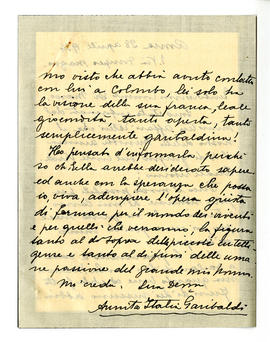 mo visto che abbia avuto contatto
con lui a Colombo, lei solo ha
la visione della sua franca, leale
giocondità, tanto aperta, tanto
semplicemente garibaldina!
Ho pensato d'informarla, perché
so ch'Ella avrebbe desiderato sapere
ed anche con la speranza che possa
io viva, adempiere l'opera giusta
di formare per il mondo dei viventi
e per quelli che verranno, la figura
tanto al di sopra delle piccole
e tanto al di fuori delle umane
passione del grande mio Nonno.
Mi creda. Sua Dev.ma
Annita Italia Garibaldi